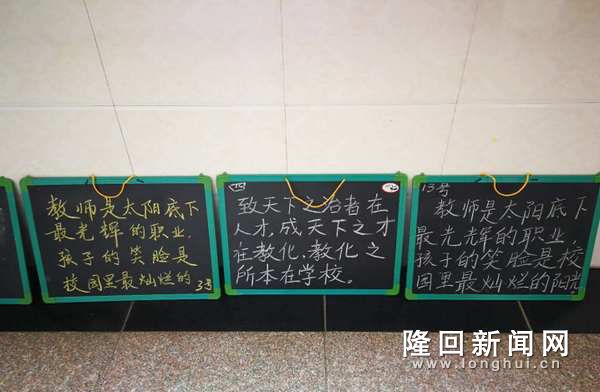 教师是太阳底下
最光辉的职业.
孩子的笑脸是
校园里最灿烂的
3号
致天下之治者在
人才,成天下之才
在教化.教化之
所本在学校。
13号
教师是太阳底下
最光辉的职业
孩子的笑脸是校
园里最灿烂的阳光
隆回新闻网
www.longhui.cn